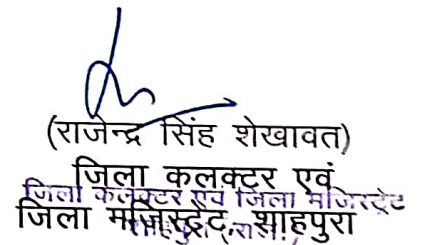 (राजेन्द्र सिंह शेखावत)
जिला कलक्टर एवं
जिला कलेक्टर एवं जिला मजिस्ट्रेट
जिला मजिस्ट्रेट, शाहपुरा